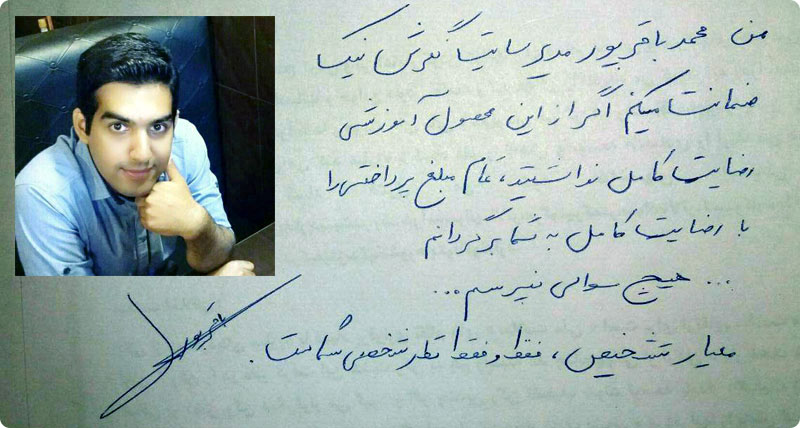 من محمد باقرپور مدیر سایت نگرش نیک
ضمانت میکنم اگر از این محصول آموزشی
رضایت کامل نداشتید، تمام مبلغ پرداختی را
با رضایت کامل به شما برگردانم
... هیچ سوالی نمیپرسم...
معیار تشخیص، فقط و فقط نظر شخصی شماست.
باقرپور